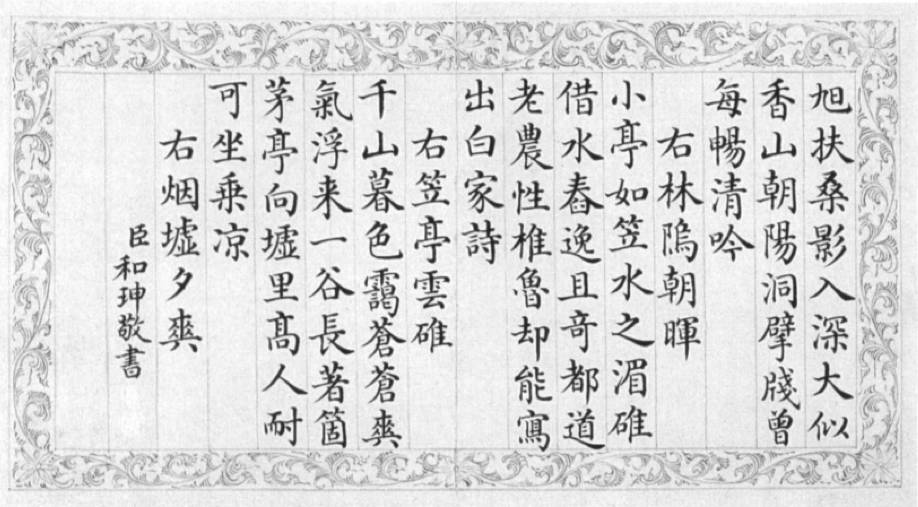 旭扶桑影入深大似
香山朝陽洞擘牋曾
每暢清吟
右林隖朝暉
小亭如笠水之湄碓
借水舂逸且竒都道
老農性椎魯却能寫
出白家詩
右笠亭雲碓
千山暮色靄蒼蒼爽
氣浮来一谷長著箇
茅亭向墟里髙人耐
可坐乗凉
右烟墟夕爽
臣和珅敬書